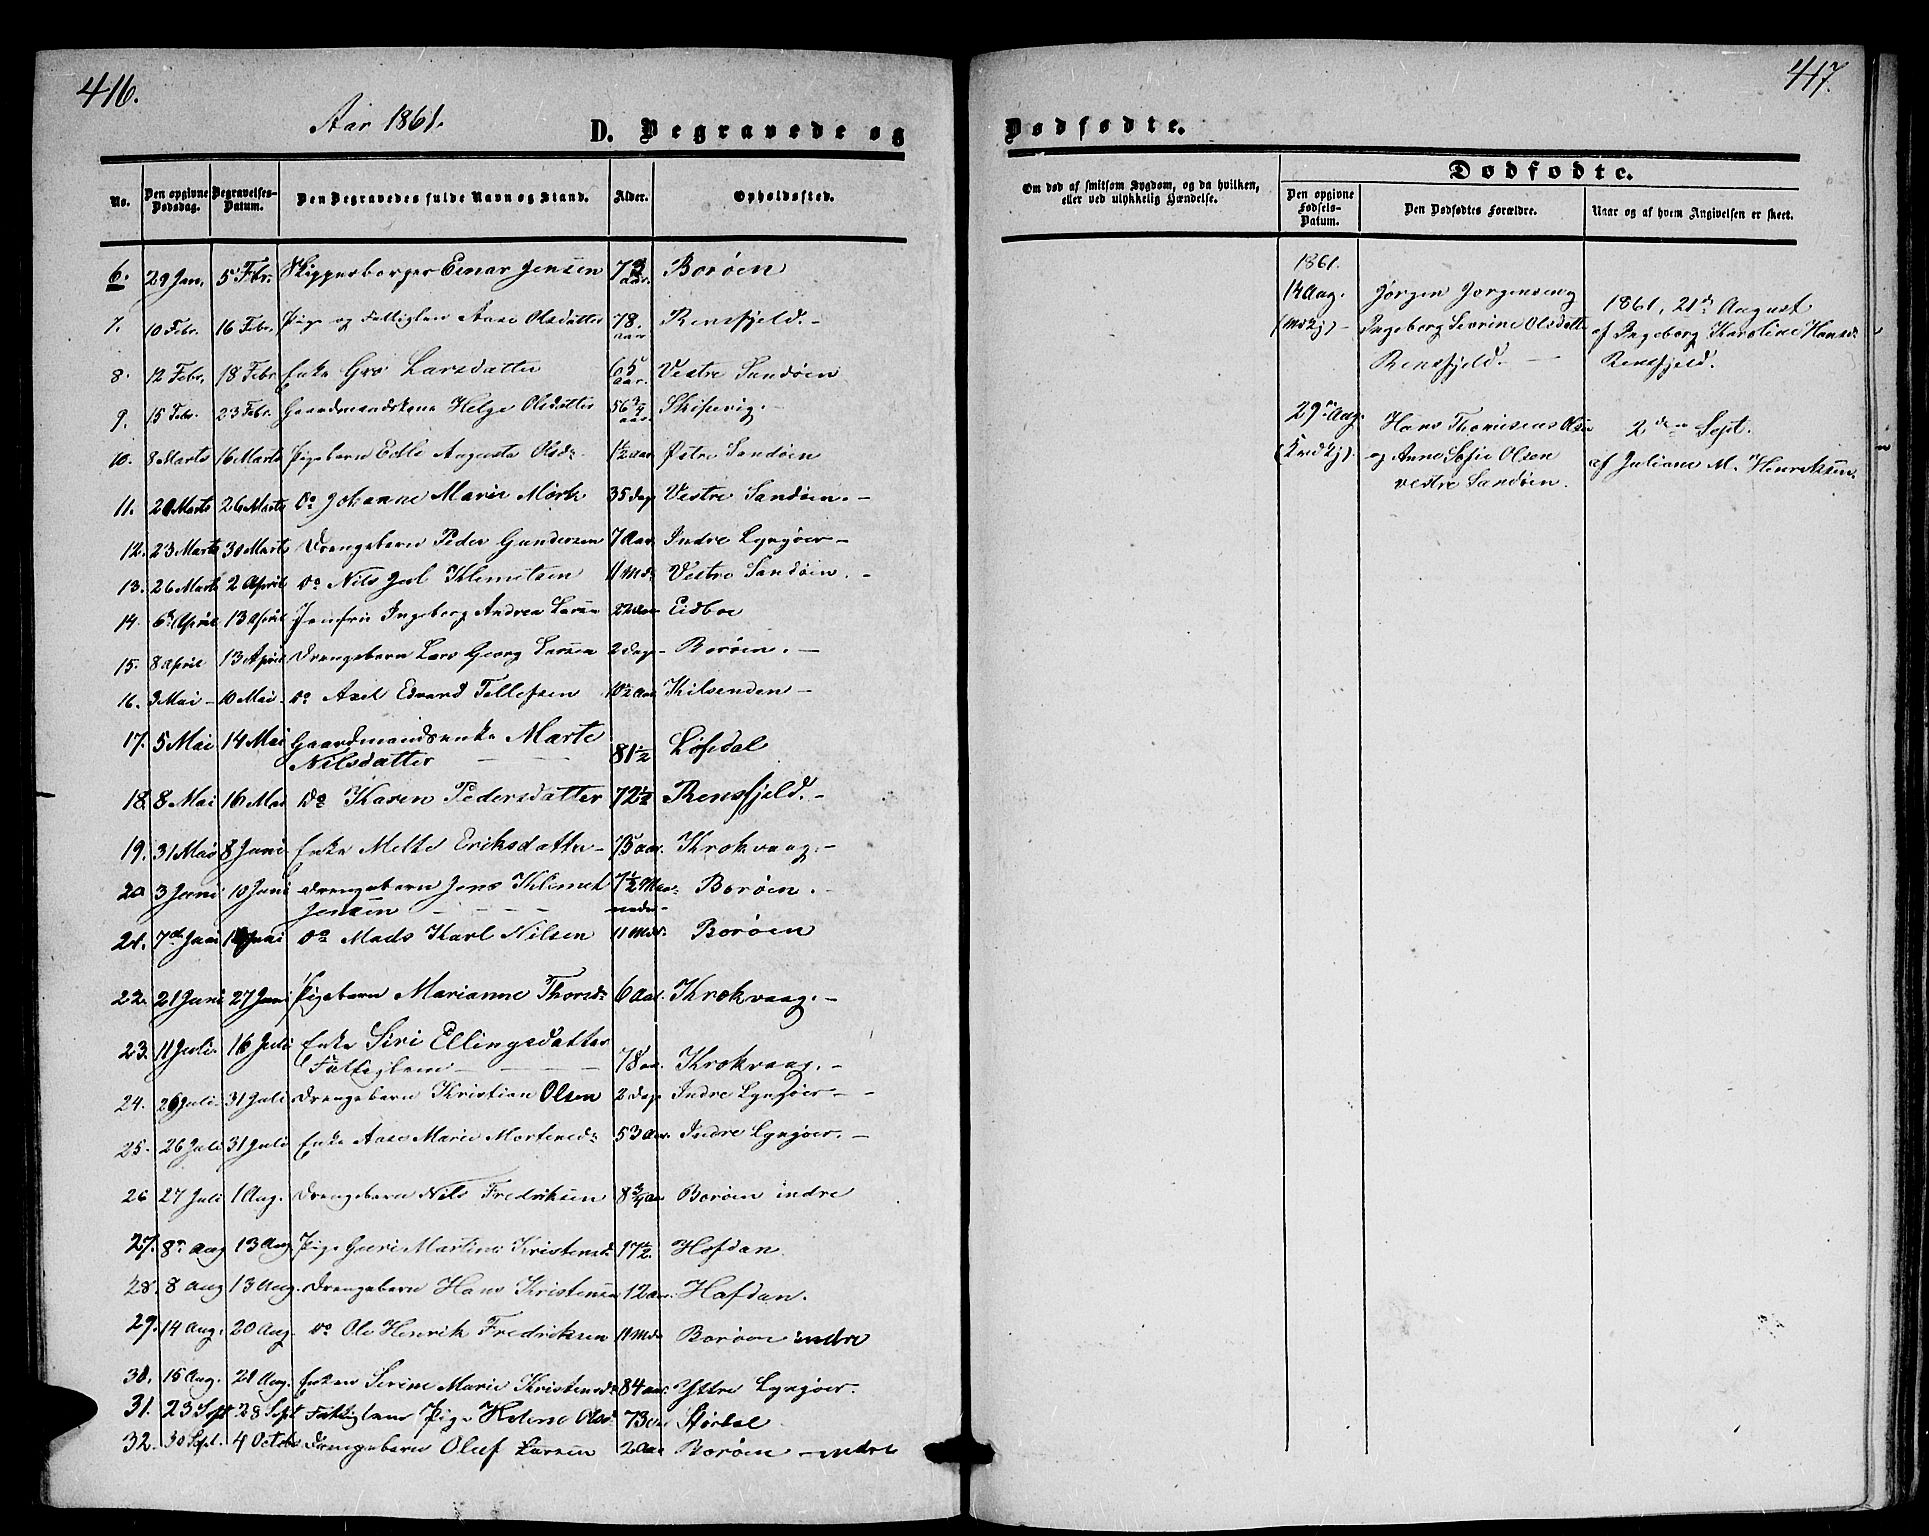 416.
Aar 1861.
D. Begravede og
No. Den opgivne Dødsdag. Begravelses-Datum. Den Begravedes fulde Navn og Stand. Alder. Opholdssted.
6. 29 Jan. 5 Febr. Skipperborger Einar Jensen 73 aar. Borøen
7. 10 Febr. 16 Febr. Pige og Fattiglem Aase Olsdatter 78. aar Rensfjeld. -
8. 12 Febr. 18 Febr Enke Gro Larsdatter 65 aar. Vestre Sandøen
9. 15 Febr. 23 Febr. Gaardmandskone Helge Olsdatter 56 3/4 aar Skipevig. -
10. 8 Marts 16 Marts Pigebarn Edle Augusta Olsd. 1½ aar Østre Sandøen
11. 20 Marts 26 Marts Do Johanne Marie Mørk 35 Dage Vestre Sandøen. -
12. 23 Marts 30 Marts Drengebarn Peder Gundersen 7 Aar. Indre Lyngøer -
13. 26 Marts 2 April Do Nils Juel Klemetsen 11 Md. Vestre Sandøen. -
14. 6 April 13 April Jomfru Ingeborg Andrea Larsen 22 aar Eidboe
15. 8 April 13 April Drengebarn Lars Georg Larsen 2 Dage - Borøen. -
16. 3 Mai - 10 Mai - Do Axel Edvard Tellefsen 10½ aar Kilsenden -
17. 5 Mai 14 Mai Gaardmandsenke Marte
Nilsdatter 81½ Løfsdal
18. 8 Mai 16 Mai Do Karen Pedersdatter 72½ Rensfjeld. -
19. 31 Mai 8 Juni Enke Melke Eriksdatter - 75 aar. Krokvaag. -
20 3 Juni 10 Juni Drengebarn Jens Klemet 7½ Maa- Borøen. -
Jensen neder -
21. 7de Juni Juni Do Mads Karl Nilsen 11 Md. Borøen
22. 21 Juni 27 Juni Pigebarn Marianne Thorsd. 6 Aar. Krokvaag. -
23. 11 Juli. 16 Juli Enke Siri Ellingsdatter
Fattiglem 78 aar. Krokvaag. -
24. 26 Juli. 31 Juli Drengebarn Kristian Olsen 2 Dage Indre Lyngøer - -
25. 26 Juli 31 Juli Enke Aase Marie Mortensd. 53 Aar. Indre Lyngøer. -
26 27 Juli 1 Aug. Drengebarn Nils Fredriksen 8 3/4 Aar Borøen indre
27. 8 Aug 13 Aug Pige Guri Martine Kristensd. 17½. Hofdan.
28. 8 Aug 13 Aug. Drengebarn Hans Kristensen 12 aar. Hafdan.
29. 14 Aug. 20 Aug. Do Ole Henrik Fredriksen 11 Md. Borøen indre
30. 15 Aug. 21 Aug. Enken Serine Marie Kristensd. 84 aar. Yttre Lyngøer.
31. 23 Sept 28 Sept Fattiglem Pige Helene Olsd. 73 aar Størdal
32. 30 Sept. 4 Octob. Drengebarn Oluf Larsen 2 Aar Borøen - indre
417.
Dødfødte.
Om død af smitsom Sygdom, og da hvilken, eller ved ulykkelig Hændelse.
Dødfødte.
Den opgivne Fødsels-Datum. Den Dødfødtes Forældre. Naar og af hvem Angivelsen er skeet.
1861.
14 Aug. Jørgen Jørgensen og 1861, 21de August
(Md Kj) - Ingeborg Serine Olsdatter af Ingeborg Karoline Hansd.
Rensfjeld. - Rensfjeld.
29 Aug. Hans Thomesens Olsen 2den Sept.
(Kvd Kj). og Anne Sofie Olsen af Juliane M. Henriksen.
vestre Sandøen.